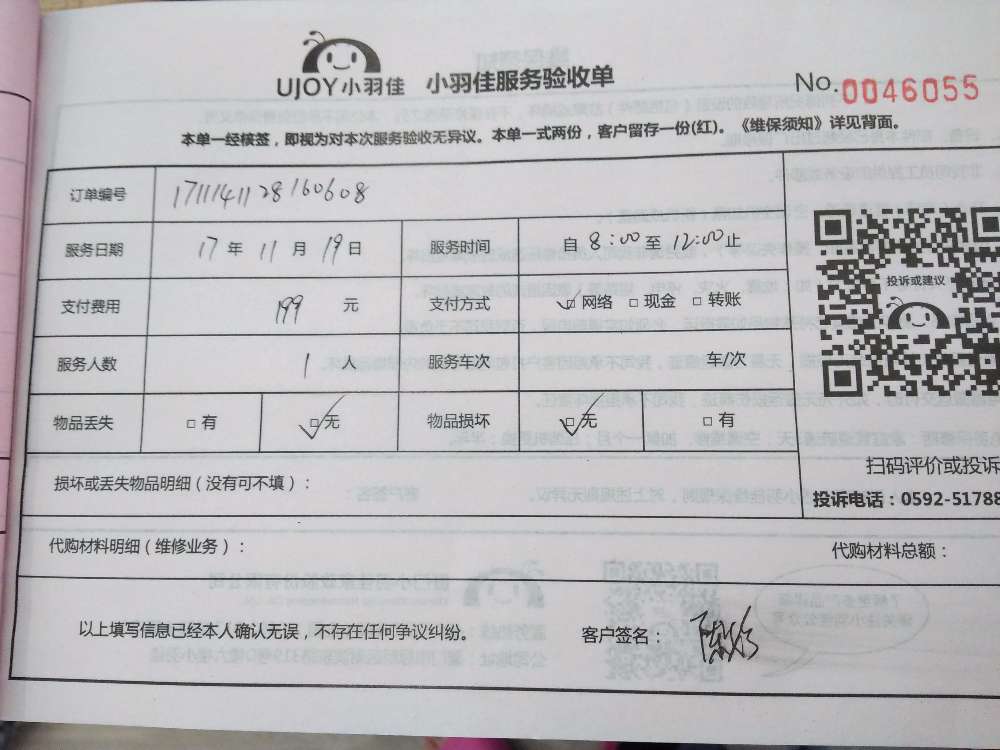 UJOY小羽佳 小羽佳服务验收单 No.0046055
本单一经核签，即视为对本次服务验收无异议。本单一式两份，客户留存一份(红)。《维保须知》详见背面。
订单编号 1711141128160608
服务日期 17年11月19日 服务时间 自8:00至12:00止
支付费用 199元 支付方式 ☑网络 □现金 □转账
服务人数 1人 服务车次 车/次
物品丢失 □有 ☑无 物品损坏 ☑无 □有
投诉或建议
扫码评价或投诉
投诉电话：0592-51788
损坏或丢失物品明细（没有可不填）：
代购材料明细（维修业务）： 代购材料总额：
以上填写信息已经本人确认无误，不存在任何争议纠纷。 客户签名：